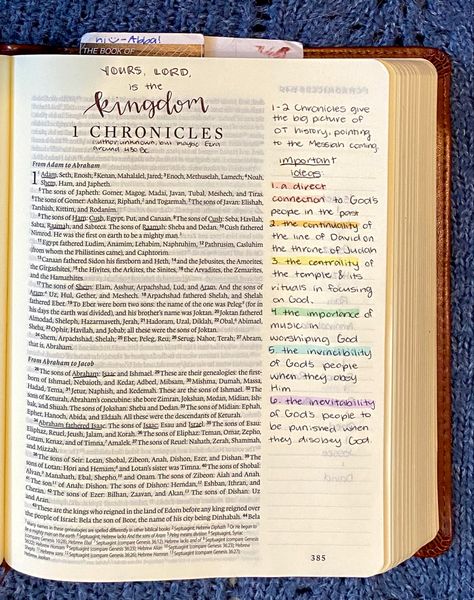 hi Abba!
THE BOOK OF
YOURS, LORD,
is the
kingdom
1 CHRONICLES
author unknown, but maybe Ezra
around 430 BC
From Adam to Abraham
1 Adam, Seth, Enosh; ²Kenan, Mahalalel, Jared; ³Enoch, Methuselah, Lamech; ⁴Noah,
Shem, Ham, and Japheth.
⁵The sons of Japheth: Gomer, Magog, Madai, Javan, Tubal, Meshech, and Tiras.
⁶The sons of Gomer: Ashkenaz, Riphath, and Togarmah. ⁷The sons of Javan: Elishah,
Tarshish, Kittim, and Rodanim.
⁸The sons of Ham: Cush, Egypt, Put, and Canaan. ⁹The sons of Cush: Seba, Havilah,
Sabta, Raamah, and Sabteca. The sons of Raamah: Sheba and Dedan. ¹⁰Cush fathered
Nimrod. He was the first on earth to be a mighty man.
¹¹Egypt fathered Ludim, Anamim, Lehabim, Naphtuhim, ¹²Pathrusim, Casluhim
(from whom the Philistines came), and Caphtorim.
¹³Canaan fathered Sidon his firstborn and Heth, ¹⁴and the Jebusites, the Amorites,
the Girgashites, ¹⁵the Hivites, the Arkites, the Sinites, ¹⁶the Arvadites, the Zemarites,
and the Hamathites.
¹⁷The sons of Shem: Elam, Asshur, Arpachshad, Lud, and Aram. And the sons of
Aram: Uz, Hul, Gether, and Meshech. ¹⁸Arpachshad fathered Shelah, and Shelah
fathered Eber. ¹⁹To Eber were born two sons: the name of the one was Peleg (for in
his days the earth was divided), and his brother's name was Joktan. ²⁰Joktan fathered
Almodad, Sheleph, Hazarmaveth, Jerah, ²¹Hadoram, Uzal, Diklah, ²²Obal, Abimael,
Sheba, ²³Ophir, Havilah, and Jobab; all these were the sons of Joktan.
²⁴Shem, Arpachshad, Shelah; ²⁵Eber, Peleg, Reu; ²⁶Serug, Nahor, Terah; ²⁷Abram,
that is, Abraham.
From Abraham to Jacob
²⁸The sons of Abraham: Isaac and Ishmael. ²⁹These are their genealogies: the first-
born of Ishmael, Nebaioth, and Kedar, Adbeel, Mibsam, ³⁰Mishma, Dumah, Massa,
Hadad, Tema, ³¹Jetur, Naphish, and Kedemah. These are the sons of Ishmael. ³²The
sons of Keturah, Abraham's concubine: she bore Zimran, Jokshan, Medan, Midian, Ish-
bak, and Shuah. The sons of Jokshan: Sheba and Dedan. ³³The sons of Midian: Ephah,
Epher, Hanoch, Abida, and Eldaah. All these were the descendants of Keturah.
³⁴Abraham fathered Isaac. The sons of Isaac: Esau and Israel. ³⁵The sons of Esau:
Eliphaz, Reuel, Jeush, Jalam, and Korah. ³⁶The sons of Eliphaz: Teman, Omar, Zepho,
Gatam, Kenaz, and of Timna, Amalek. ³⁷The sons of Reuel: Nahath, Zerah, Shammah,
and Mizzah.
³⁸The sons of Seir: Lotan, Shobal, Zibeon, Anah, Dishon, Ezer, and Dishan. ³⁹The
sons of Lotan: Hori and Hemam; and Lotan's sister was Timna. ⁴⁰The sons of Shobal:
Alvan, Manahath, Ebal, Shepho, and Onam. The sons of Zibeon: Aiah and Anah.
⁴¹The son of Anah: Dishon. The sons of Dishon: Hemdan, Eshban, Ithran, and
Cheran. ⁴²The sons of Ezer: Bilhan, Zaavan, and Akan. The sons of Dishan: Uz
and Aran.
⁴³These are the kings who reigned in the land of Edom before any king reigned over
the people of Israel: Bela the son of Beor, the name of his city being Dinhabah. ⁴⁴Bela
1-2 Chronicles give
the big picture of
OT history, pointing
to the Messiah coming.
important
ideas:
1. a direct
connection to God's
people in the past
2. the continuality of
the line of David on
the throne of Judah
3. the centrality of
the temple & its
rituals in focusing
on God.
4. the importance of
music in
worshipping God
5. the invincibility
of God's people
when they obey
Him
6. the inevitability
of God's people to
be punished when
they disobey God.
385